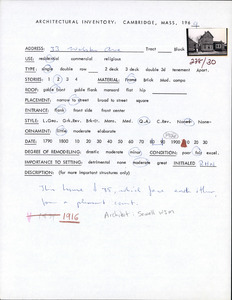 ARCHITECTURAL INVENTORY: CAMBRIDGE, MASS, 196
ADDRESS: 33 Ave Tract Block
238/30
USE: residential commercial religious
TYPE: single double row 2 deck 3 deck double 3 tenement Apart.
STORIES: 1 2 3 4 MATERIAL: Frame Brick Mod. comps
ROOF: gable front gable flank mansard flat hip
PLACEMENT: narrow to street broad to street square
ENTRANCE: front side center corner
STYLE: L.Geo. Gk.Rev. Brkt. Mans. Med. Q.A. C.Rev. None
ORNAMENT: little moderate elaborate
DATE: 1790 1800 10 20 30 40 50 60 70 80 90 1900 10 20 30
DEGREE OF REMODELING: drastic moderate minor CONDITION: poor fair excel.
IMPORTANCE TO SETTING: detrimental none moderate great INITIALED
DESCRIPTION: (for more important structures only)
This house & 35, which face each other,
form a pleasant court.
1916 Archibt: